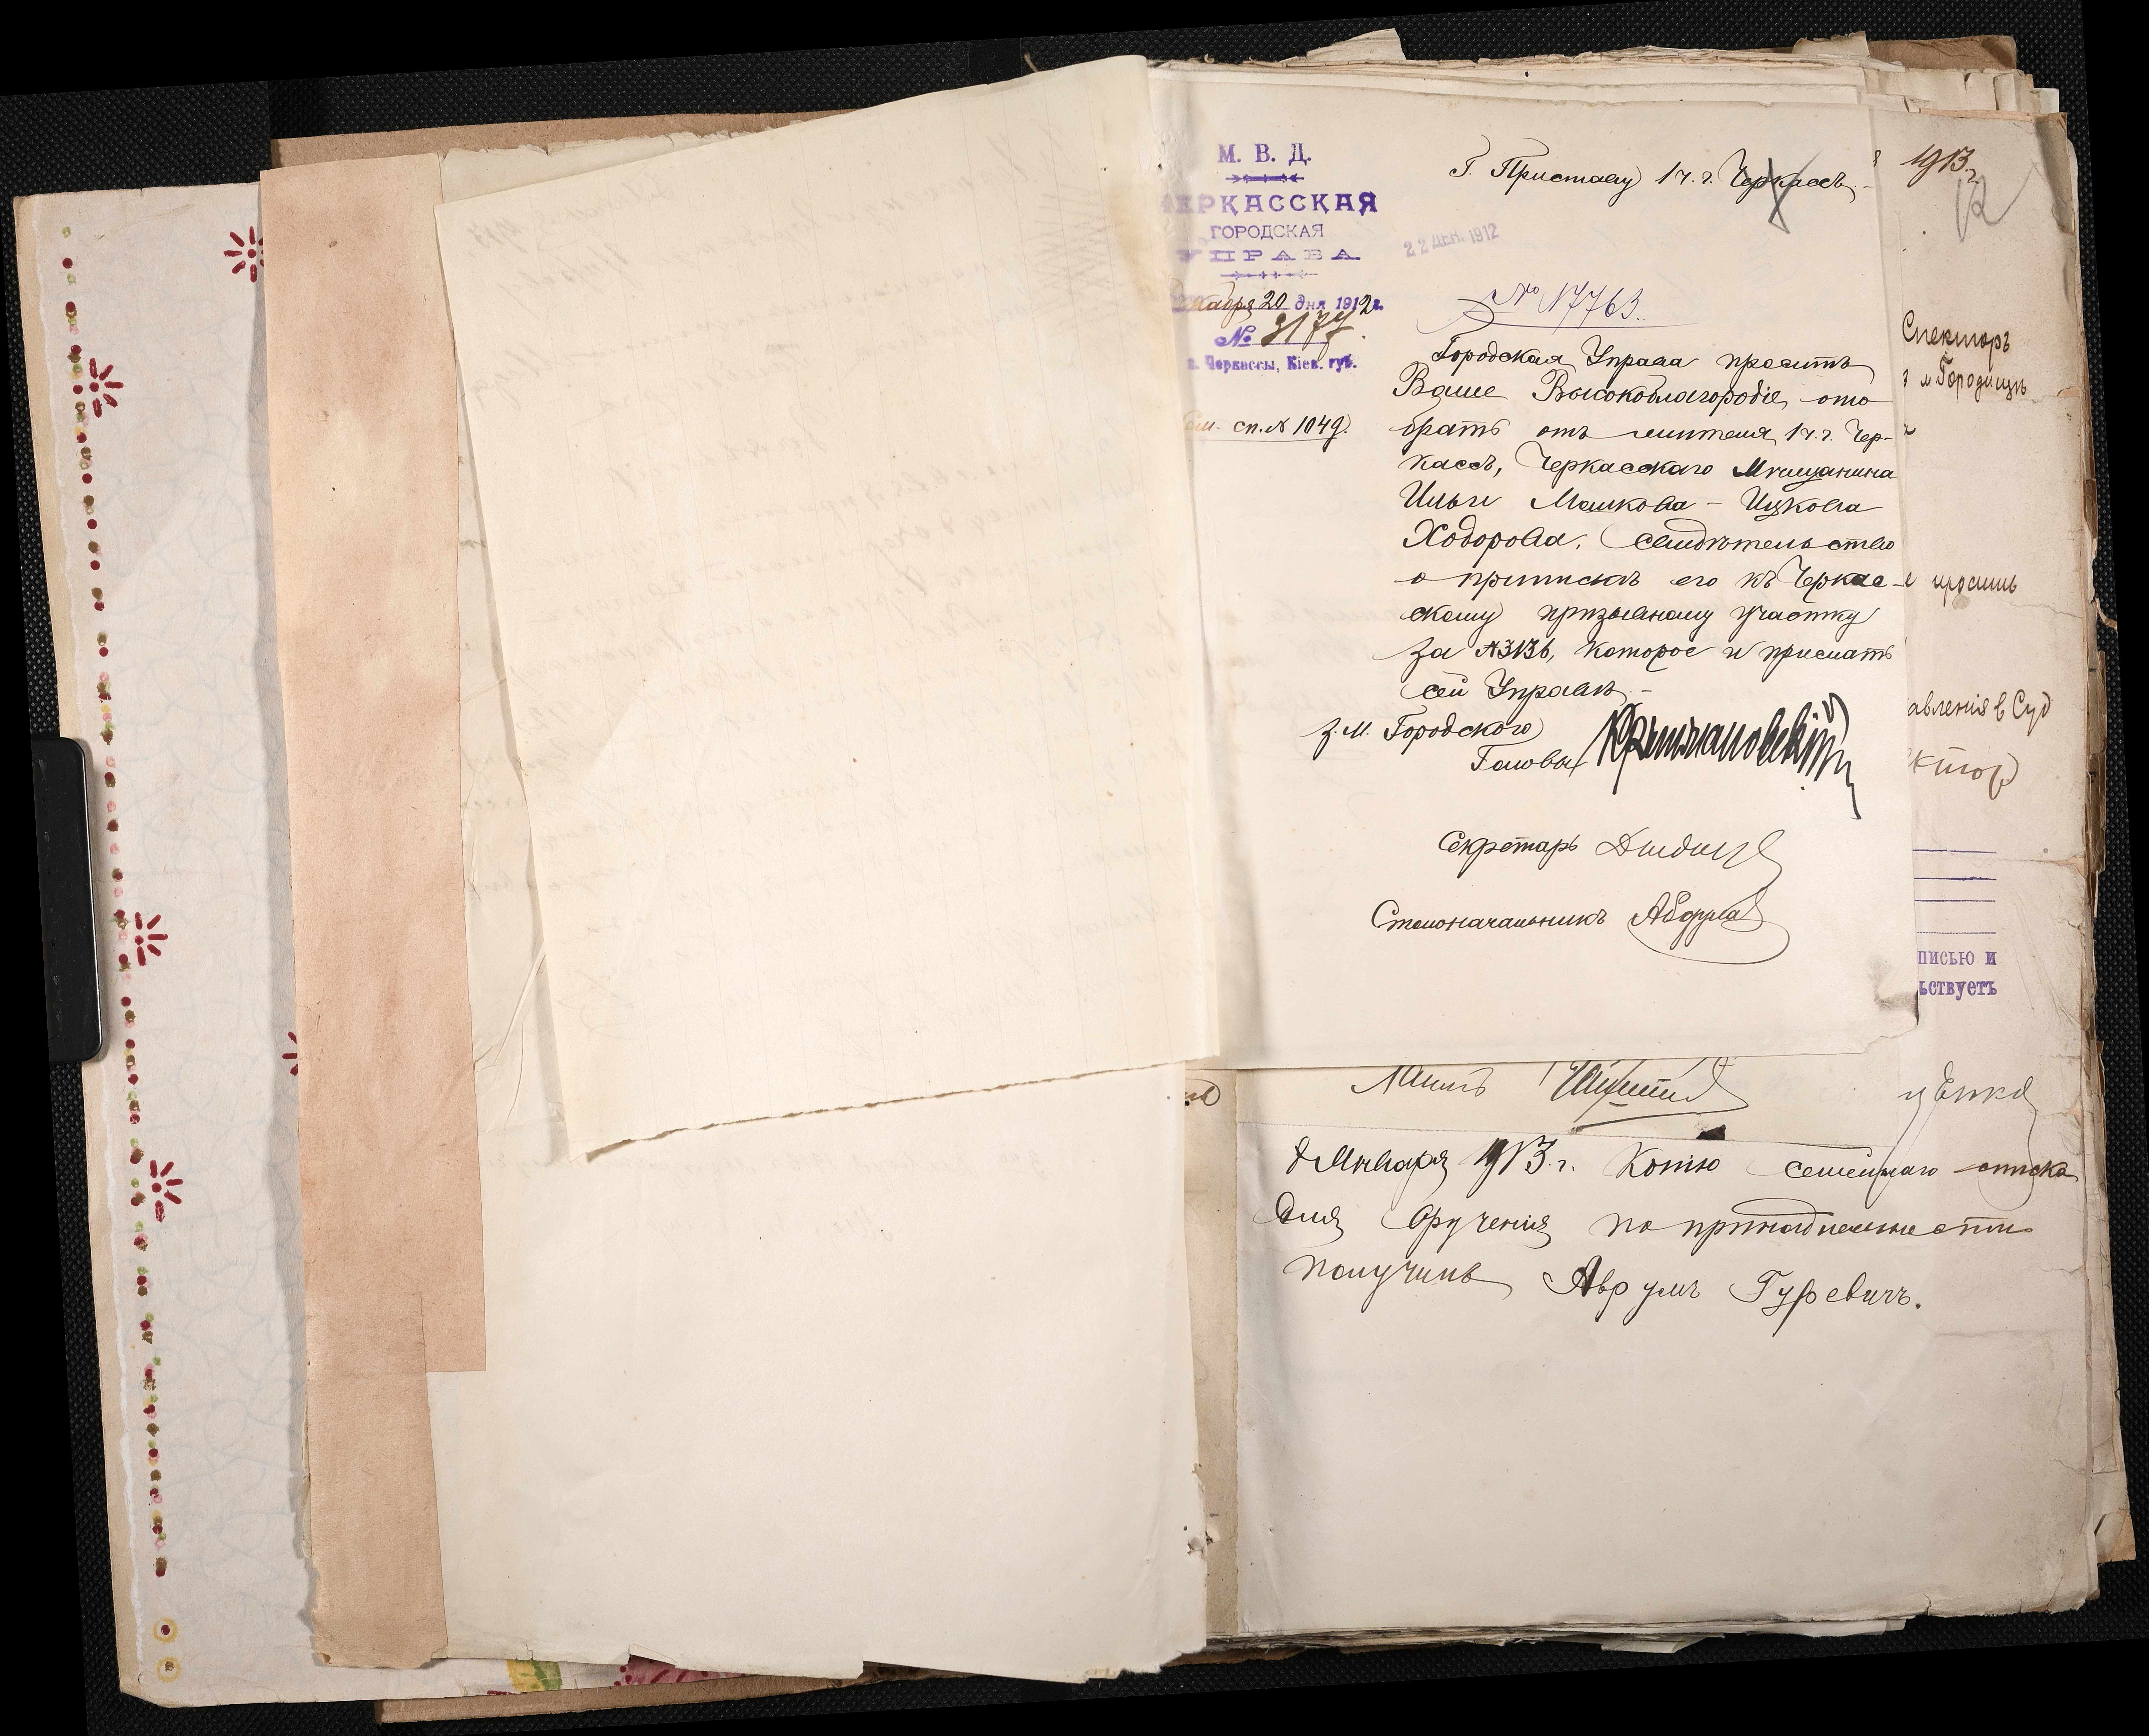 М. В. Д.
ЧЕРКАССКАЯ
ГОРОДСКАЯ
УПРАВА
Декабря 20 дня 1912 г.
№ 3177
г. Черкассы, Кіев. губ.
сп. № 1049.
Г. Приставу 1 ч. г. Черкассъ.
22 ДЕК. 1912
№ 17763.
Городская Управа проситъ
Ваше Высокоблагородіе ото
брать отъ жителя 1 ч. г. Чер-
кассъ, Черкасскаго Мѣщанина
Ильи Мошкова-Ицкова
Ходорова, свидѣтельство
о припискѣ его къ Черкас-
скому призывному участку
за №3136, которое и прислать
сей Управѣ.-
З. М. Городского
Головы Крыжановскій
Секретарь
Столоначальникъ
1913 г.
12
Спекторъ
м. Городищъ
просишь
авленія в Суд
ктор
писью и
ьствуетъ
8 Января 1913 г. Копію семейнаго списка
для врученія по принадлежности
получилъ Аврумъ Гуревичъ.